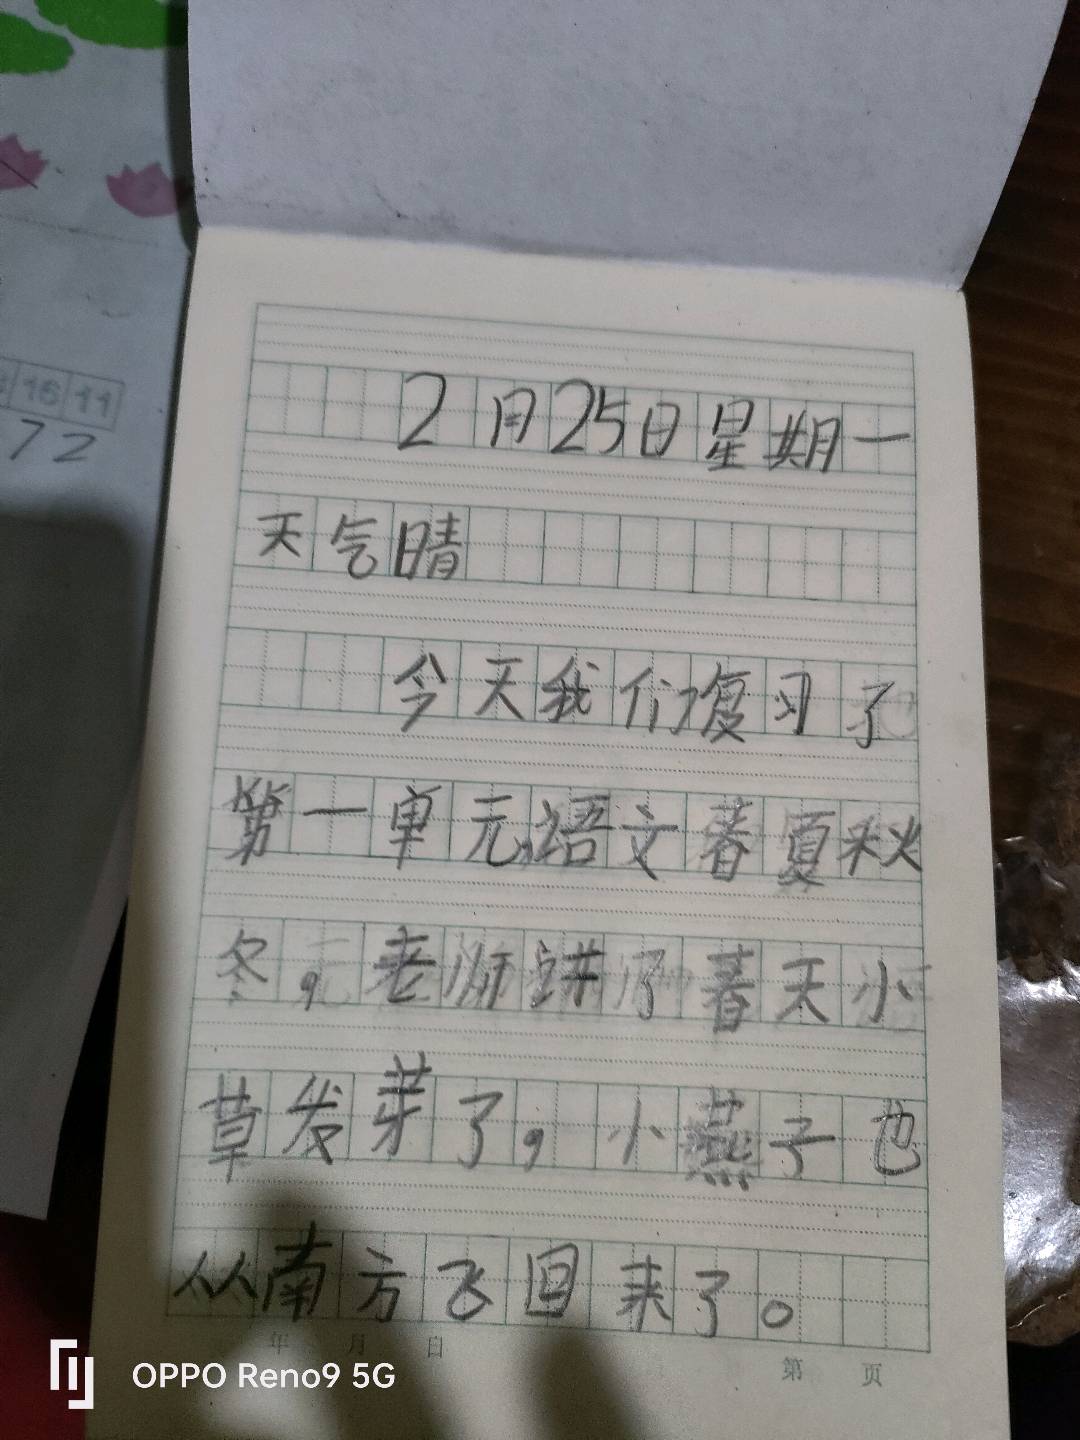 16 11
72
2月25日星期一
天气晴
今天我们复习了
第一单元语文春夏秋
冬，老师讲了春天小
草发芽了，小燕子也
从南方飞回来了。
年 月 日
第 页
OPPO Reno9 5G